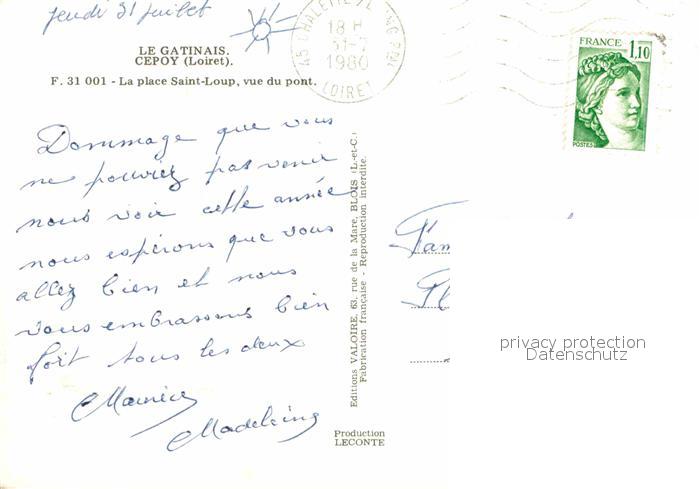 Jeudi 31 juillet
LE GATINAIS.
CEPOY (Loiret).
F. 31 001 - La place Saint-Loup, vue du pont.
45 CHALETTE /L
18 H
31-7
1980
LOIRET
FRANCE 1,10
POSTES
Dommage que vous
ne pouviez pas venir
nous voir cette année
nous espérons que vous
allez bien et nous
vous embrassons bien
fort tous les deux
Maurice
Madeleine
Editions VALOIRE, 63, rue de la Mare, BLOIS (L.-et-C.)
Fabrication française - Reproduction interdite.
Production
LECONTE
privacy protection
Datenschutz